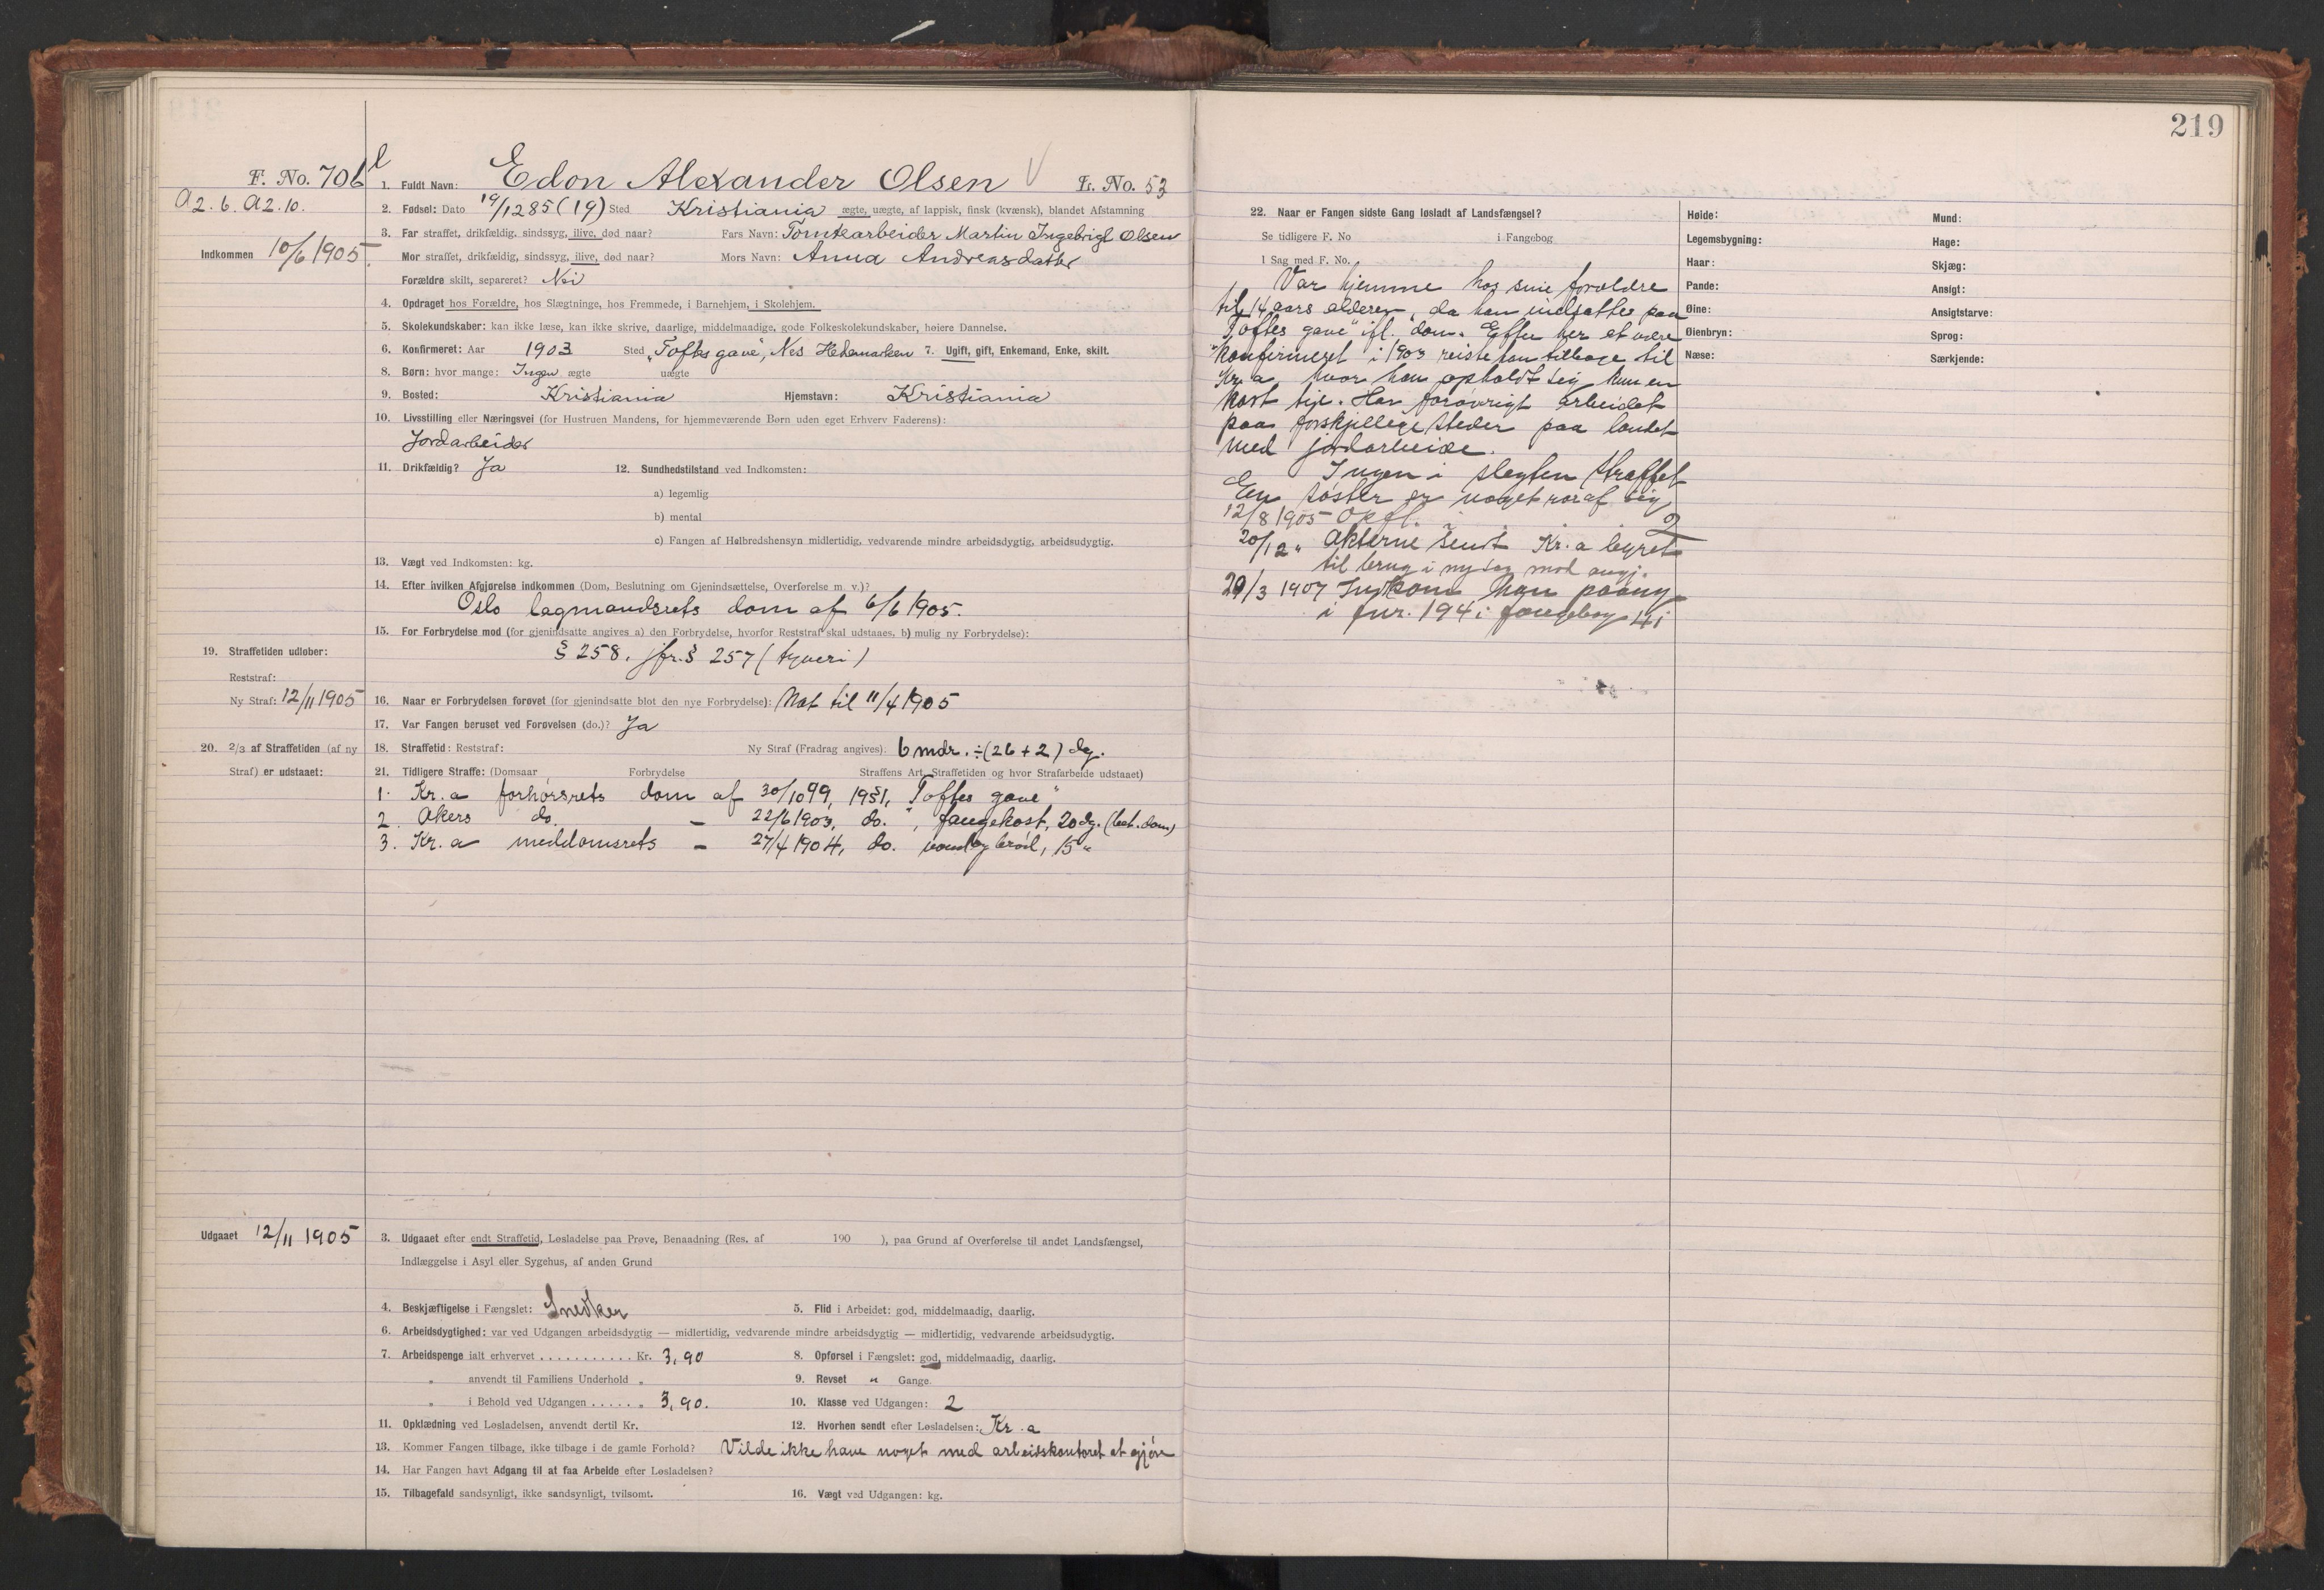 219
F. No. 706
A2.6. A2.10.
Indkommen 10/6 1905.
1. Fuldt Navn: Edon Alexander Olsen L. No. 53
2. Fødsel: Dato 19/12 85 (19) Sted Kristiania ægte, uægte, af lappisk, finsk (kvænsk), blandet Afstamning
3. Far straffet, drikfældig, sindssyg, ilive, død naar? Fars Navn: Tomtearbeider Martin Ingebrigt Olsen
Mor straffet, drikfældig, sindssyg, ilive, død naar? Mors Navn: Anna Andreasdatter
Forældre skilt, separeret? Nei
4. Opdraget hos Forældre, hos Slægtninge, hos Fremmede, i Barnehjem, i Skolehjem.
5. Skolekundskaber: kan ikke læse, kan ikke skrive, daarlige, middelmaadige, gode Folkeskolekundskaber, høiere Dannelse.
6. Konfirmeret: Aar 1903 Sted „Toftes gave", Nes Hedemarken 7. Ugift, gift, Enkemand, Enke, skilt.
8. Børn: hvor mange: Ingen ægte uægte
9. Bosted: Kristiania Hjemstavn: Kristiania
10. Livsstilling eller Næringsvei (for Hustruen Mandens, for hjemmeværende Børn uden eget Erhverv Faderens):
Jordarbeider
11. Drikfældig? Ja 12. Sundhedstilstand ved Indkomsten:
a) legemlig
b) mental
c) Fangen af Helbredshensyn midlertidig, vedvarende mindre arbeidsdygtig, arbeidsudygtig.
13. Vægt ved Indkomsten: kg.
14. Efter hvilken Afgjørelse indkommen (Dom, Beslutning om Gjenindsættelse, Overførelse m. v.)?
Oslo lagmandsrets dom af 6/6 1905.
15. For Forbrydelse mod (for gjenindsatte angives a) den Forbrydelse, hvorfor Reststraf skal udstaaes, b) mulig ny Forbrydelse):
§ 258, jfr. § 257 (tyveri)
19. Straffetiden udløber:
Reststraf:
Ny Straf: 12/11 1905
16. Naar er Forbrydelsen forøvet (for gjenindsatte blot den nye Forbrydelse): Nat til 11/4 1905
17. Var Fangen beruset ved Forøvelsen (do.)? Ja
20. 2/3 af Straffetiden (af ny
Straf) er udstaaet:
18. Straffetid: Reststraf: Ny Straf (Fradrag angives). 6 mdr. ÷ (26 + 2) dg.
21. Tidligere Straffe: (Domsaar Forbrydelse Straffens Art, Straffetiden og hvor Strafarbeide udstaaet)
1. Kr.a forhørsrets dom af 30/10 99, 19§1, „Toftes gave"
2. Akers do. — 22/6 1903, do. ", fangekost, 20 dg. (bet. dom)
3. Kr.a meddomsrets — 27/4 1904, do. vand og brød, 15 "
Udgaaet 12/11 1905
3. Udgaaet efter endt Straffetid, Løsladelse paa Prøve, Benaadning (Res. af 190 ), paa Grund af Overførelse til andet Landsfængsel,
Indlæggelse i Asyl eller Sygehus, af anden Grund
4. Beskjæftigelse i Fængslet: Snedker 5. Flid i Arbeidet: god, middelmaadig, daarlig.
6. Arbeidsdygtighed: var ved Udgangen arbeidsdygtig — midlertidig, vedvarende mindre arbeidsdygtig — midlertidig, vedvarende arbeidsudygtig.
7. Arbeidspenge ialt erhvervet ........... Kr. 3,90 8. Opførsel i Fængslet: god, middelmaadig, daarlig.
„ anvendt til Familiens Underhold „ 9. Revset " Gange.
„ i Behold ved Udgangen ...... „ 3,90. 10. Klasse ved Udgangen: 2
11. Opklædning ved Løsladelsen, anvendt dertil Kr. 12. Hvorhen sendt efter Løsladelsen: Kr.a
13. Kommer Fangen tilbage, ikke tilbage i de gamle Forhold? Vilde ikke have noget med arbeidskontoret at gjøre
14. Har Fangen havt Adgang til at faa Arbeide efter Løsladelsen?
15. Tilbagefald sandsynligt, ikke sandsynligt, tvilsomt. 16. Vægt ved Udgangen: kg.
22. Naar er Fangen sidste Gang løsladt af Landsfængsel?
Se tidligere F. No i Fangebog
I Sag med F. No.
Var hjemme hos sine forældre
til 14 aars alderen, da han indsattes paa
„Toftes gave" ifl. dom. Efter her at være
konfirmeret i 1903 reiste han tilbage til
Kr.a hvor han opholdt sig kun en
kort tije. Har forøvrigt arbeidet
paa forskjellige steder paa landet
med jordarbeide.
Ingen i slegten straffet
En søster er noget rar af sig
12/8 1905 Opfl. i 2
20/12 " Akterne sendt Kr.a byret
til brug i ny sag mod angj.
29/3 1907 Indkom han paany
i fnr. 194 i fangebog 4i
Høide:
Legemsbygning:
Haar:
Pande:
Øine:
Øienbryn:
Næse:
Mund:
Hage:
Skjæg:
Ansigt:
Ansigtstarve:
Sprog:
Særkjende: